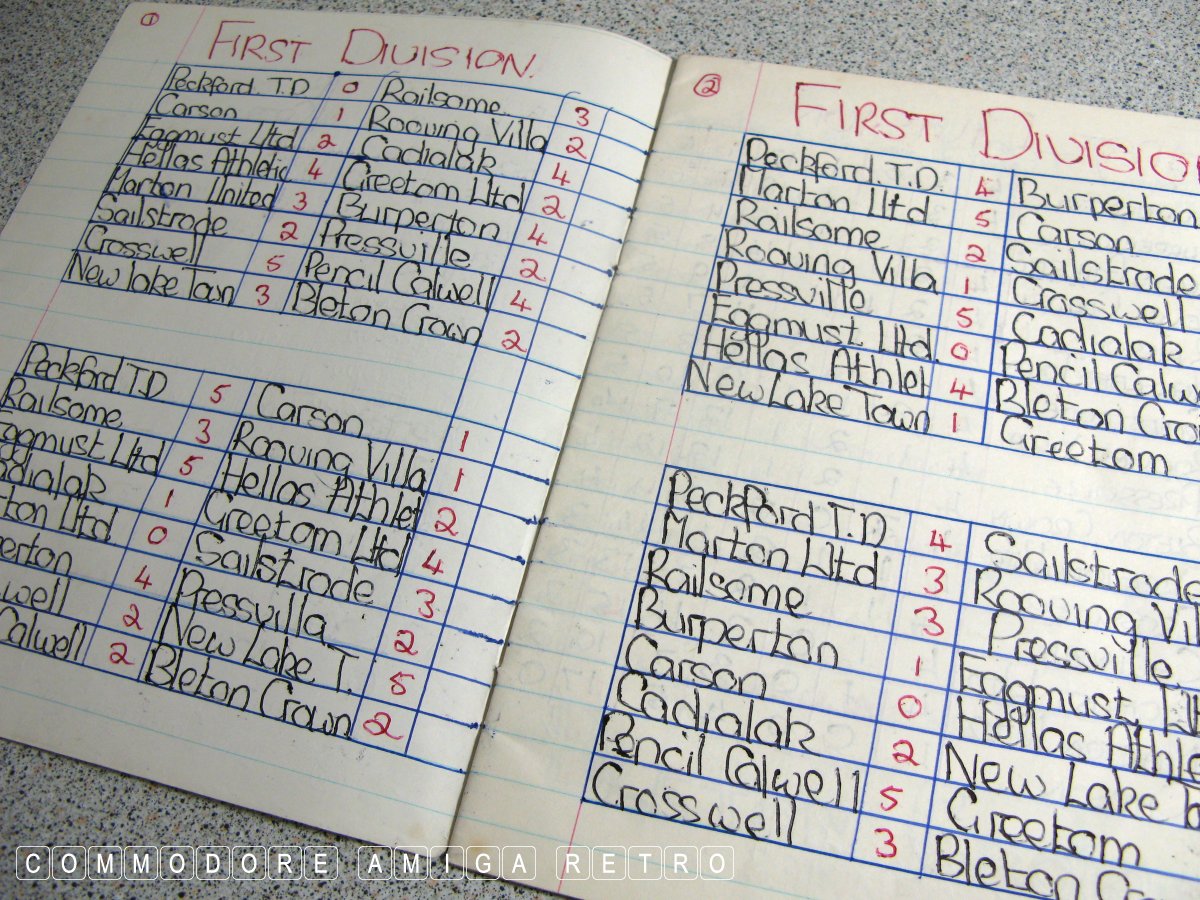 1
FIRST DIVISION.
Peckford T.D 0 Railsome 3
Carson 1 Rooving Villa 2
Eggmust Ltd 2 Cadialak 4
Hellas Athletic 4 Greetom Ltd 2
Marton United 3 Burperton 4
Sailstrade 2 Pressville 2
Crosswell 5 Pencil Calwell 4
New Lake Town 3 Bleton Crown 2
Peckford T.D 5 Carson 1
Railsome 3 Rooving Villa 1
ggmust Ltd 5 Hellas Athlet 2
dialak 1 Greetom Ltd 4
ton Ltd 0 Sailstrade 3
erton 4 Pressvilla 2
well 2 New Lake T. 5
Calwell 2 Bleton Crown 2
2
FIRST DIVISIO
Peckford T.D. 4 Burperton
Marton Ltd 5 Carson
Railsome 2 Sailstrade
Rooving Villa 1 Crosswell
Pressville 5 Cadialak
Eggmust Ltd 0 Pencil Calw
Hellas Athlet 4 Bleton Cro
New Lake Town 1 Greetom
Peckford T.D 4 Sailstrade
Marton Ltd 3 Rooving Vil
Railsome 3 Pressville
Burperton 1 Eggmust
Carson 0 Hellas Athle
Cadialak 2 New Lake
Pencil Calwell 5 Greetom
Crosswell 3 Bleton
COMMODORE AMIGA RETRO